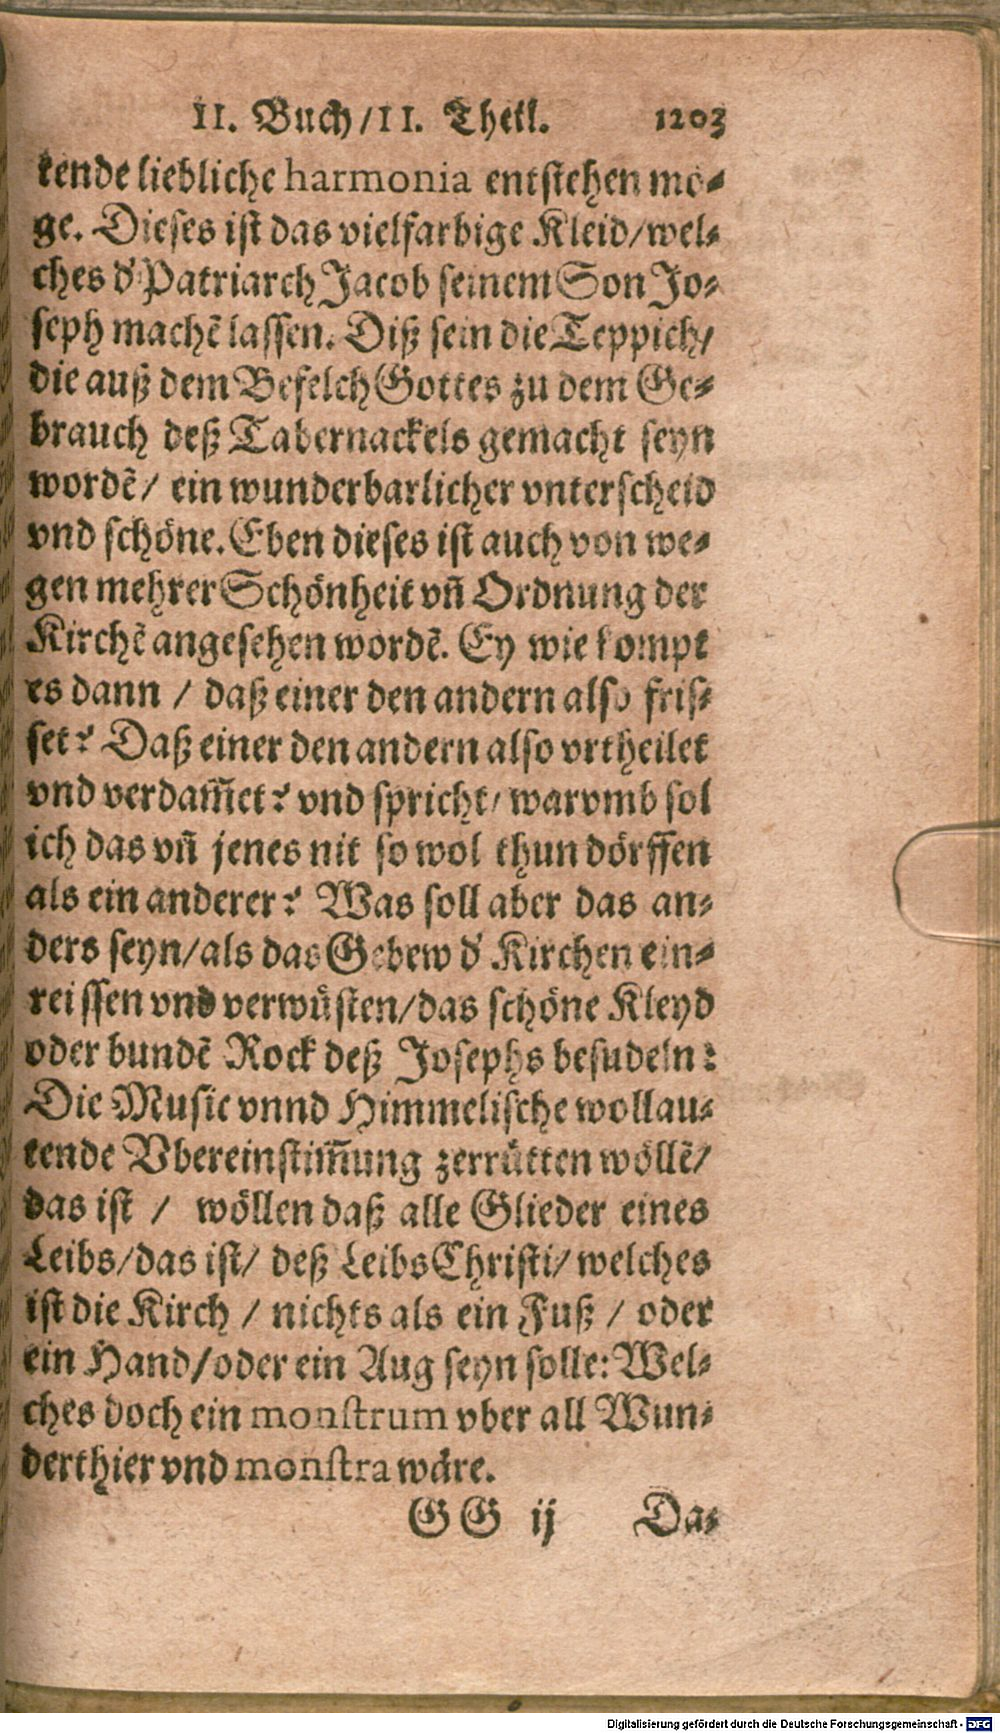 II. Buch/II. Theil. 1203
tende liebliche harmonia entstehen mö-
ge. Dieses ist das vielfarbige Kleid/wel-
ches d' Patriarch Jacob seinem Son Jo-
seph machẽ lassen. Diß sein die Teppich/
die auß dem Befelch Gottes zu dem Ge-
brauch deß Tabernackels gemacht seyn
wordẽ/ ein wunderbarlicher vnterscheid
vnd schöne. Eben dieses ist auch von we-
gen mehrer Schönheit vñ Ordnung der
Kirchẽ angesehen wordẽ. Ey wie kompt
es dann / daß einer den andern also fris-
set? Daß einer den andern also vrtheilet
vnd verdam̃et? vnd spricht/ warvmb sol
ich das vñ jenes nit so wol thun dörffen
als ein anderer? Was soll aber das an-
ders seyn/als das Gebew d' Kirchen ein-
reissen vnd verwüsten/das schöne Kleyd
oder bundẽ Rock deß Josephs besudeln?
Die Music vnnd Himmelische wollau-
tende Vbereinstim̃ung zerrütten wöllẽ/
das ist / wöllen daß alle Glieder eines
Leibs/das ist/ deß Leibs Christi/ welches
ist die Kirch / nichts als ein Fuß / oder
ein Hand/oder ein Aug seyn solle: Wel-
ches doch ein monstrum vber all Wun-
derthier vnd monstra wäre.
GG ij Da-
Digitalisierung gefördert durch die Deutsche Forschungsgemeinschaft - DFG